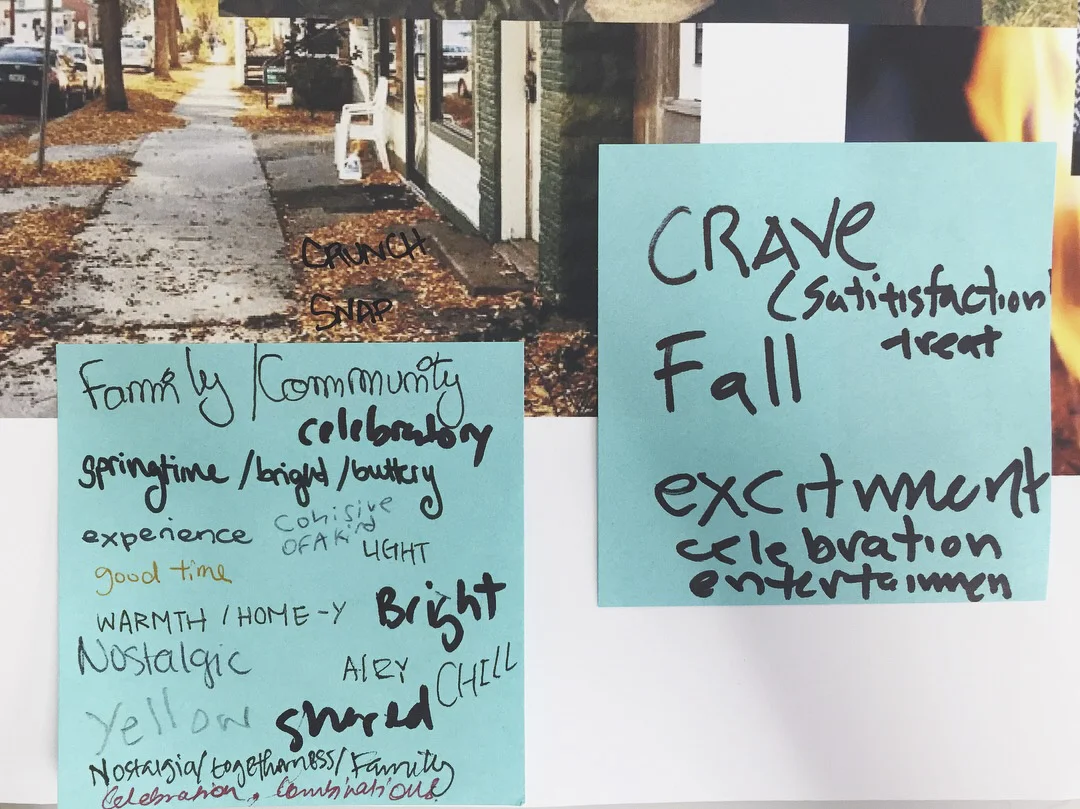 CRUNCH
SNAP
Family / Community
celebratory
springtime / bright / buttery
experience
cohisive
OF A kind
LIGHT
good time
WARMTH / HOME-Y
Bright
Nostalgic
AIRY
CHILL
Yellow
shared
Nostalgia/togetherness/Family
Celebration, Combinations
CRAVE
(Satitisfaction
treat
Fall
excitment
celebration
entertainmen